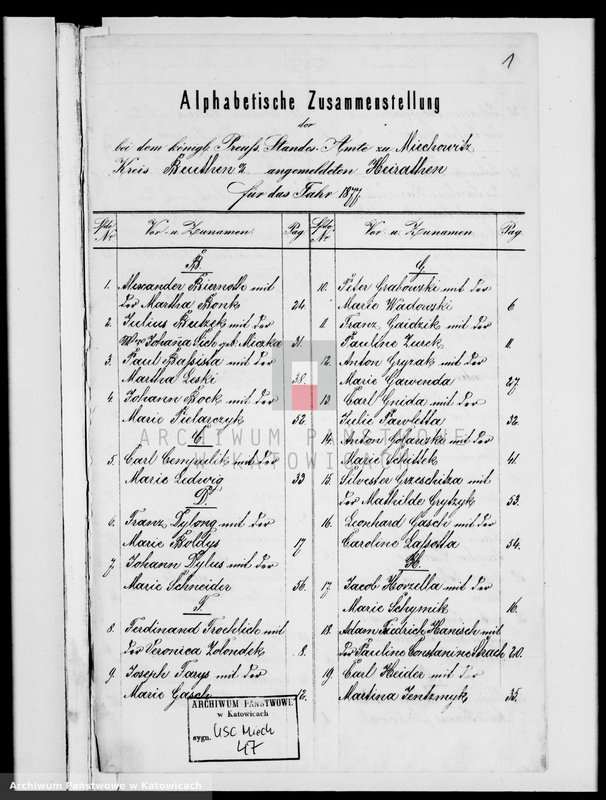 1
Alphabetische Zusammenstellung
der
bei dem königl. Preuß. Standes-Amte zu Miechowitz
Kreis Beuthen angemeldeten Heirathen
für das Jahr 1877.
Lfde Nr Vor- u. Zunamen. Pag
B
1. Alexander Biernoth mit
der Martha Bonk 24.
2. Julius Butzek mit der
Johanna geb. Miczka 31.
3. Paul Bassista mit der
Martha Leski 38.
4 Johann Bock mit der
Marie Pielarczyk 52.
C
5. Carl Cempulik mit der
Marie Ludwig 33
D.
6. Franz Dylong mit der
Marie Boldys 17
7. Johann Dylus mit der
Marie Schneider 56.
F.
8. Ferdinand Froehlich mit
der Veronica Zolondek 8.
9. Joseph Farys mit der
Marie Gasch 12.
Lfde Nr Vor- u. Zunamen Pag
G
10. Peter Grabowski mit der
Marie Wadowski 6.
11. Franz Gaidzik mit der
Pauline Zurek 11.
12. Anton Gryzak mit der
Marie Gawenda 27
13. Carl Gnida mit der
Julie Pawletta 32.
14. Anton mit der
Marie Schittek 41.
15. Silvester Grzeschitza mit
der Mathilde Grytzyk 53.
16. Leonhard Gasch mit der
Caroline Lassotta 54.
H.
17. Jacob Horzella mit der
Marie Schymik 16.
18. Adam Friedrich Hanisch mit
der Pauline Constanine Strach 20.
19. Carl Heider mit der
Martina Jentzmyk 35.
ARCHIWUM PAŃSTWOWE
W KATOWICACH
ARCHIWUM PAŃSTWOWE
w Katowicach
sygn. USC Miech
47
Archiwum Państwowe w Katowicach